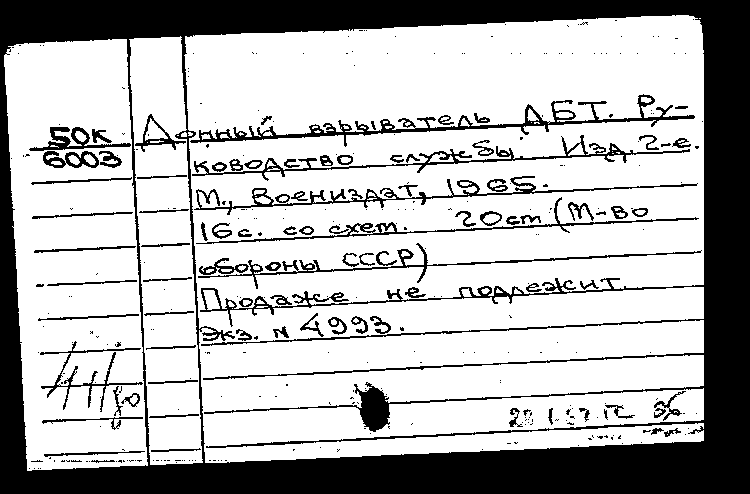 50К
6003
Донный взрыватель ДБТ. Ру-
ководство службы. Изд. 2-е.
М., Воениздат, 1965.
16с. со схем. 20см (М-во
обороны СССР)
Продаже не подлежит.
Экз. № 4993.